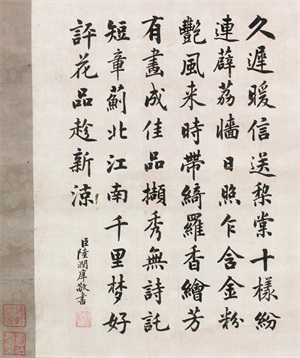 久遲暖信送棃棠十樣紛
連薜荔牆日照乍含金粉
艷風来時帶綺羅香繪芳
有畫成佳品擷秀無詩託
短章薊北江南千里梦好
評花品趁新涼
臣陸潤庠敬書